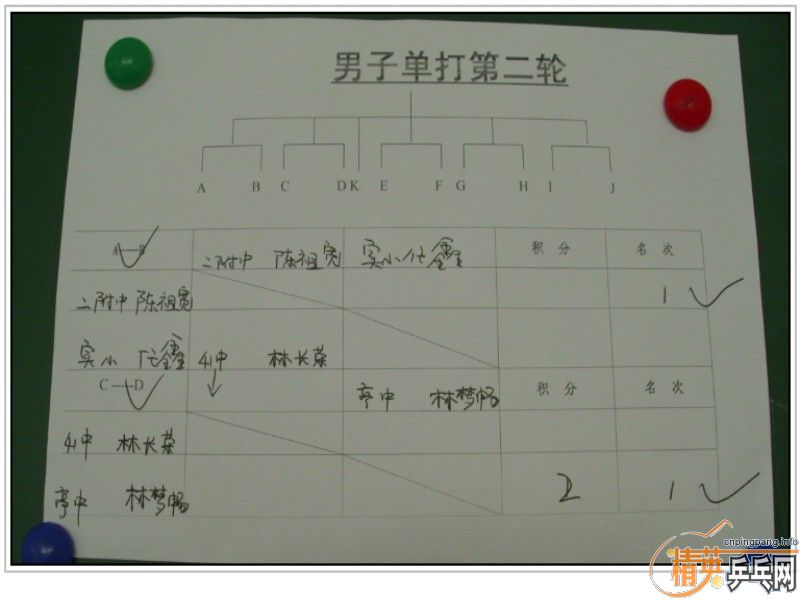 男子单打第二轮
A B C D K E F G H I J
A----B 二附中 陈祖宽 实小 伫鑫 积分 名次
二附中 陈祖宽 1
实小 鑫 41中 林长荣
C----D 亭中 林梦畅 积分 名次
41中 林长荣
亭中 林梦畅 2 1
cnpingpang.info
精英乒乓网